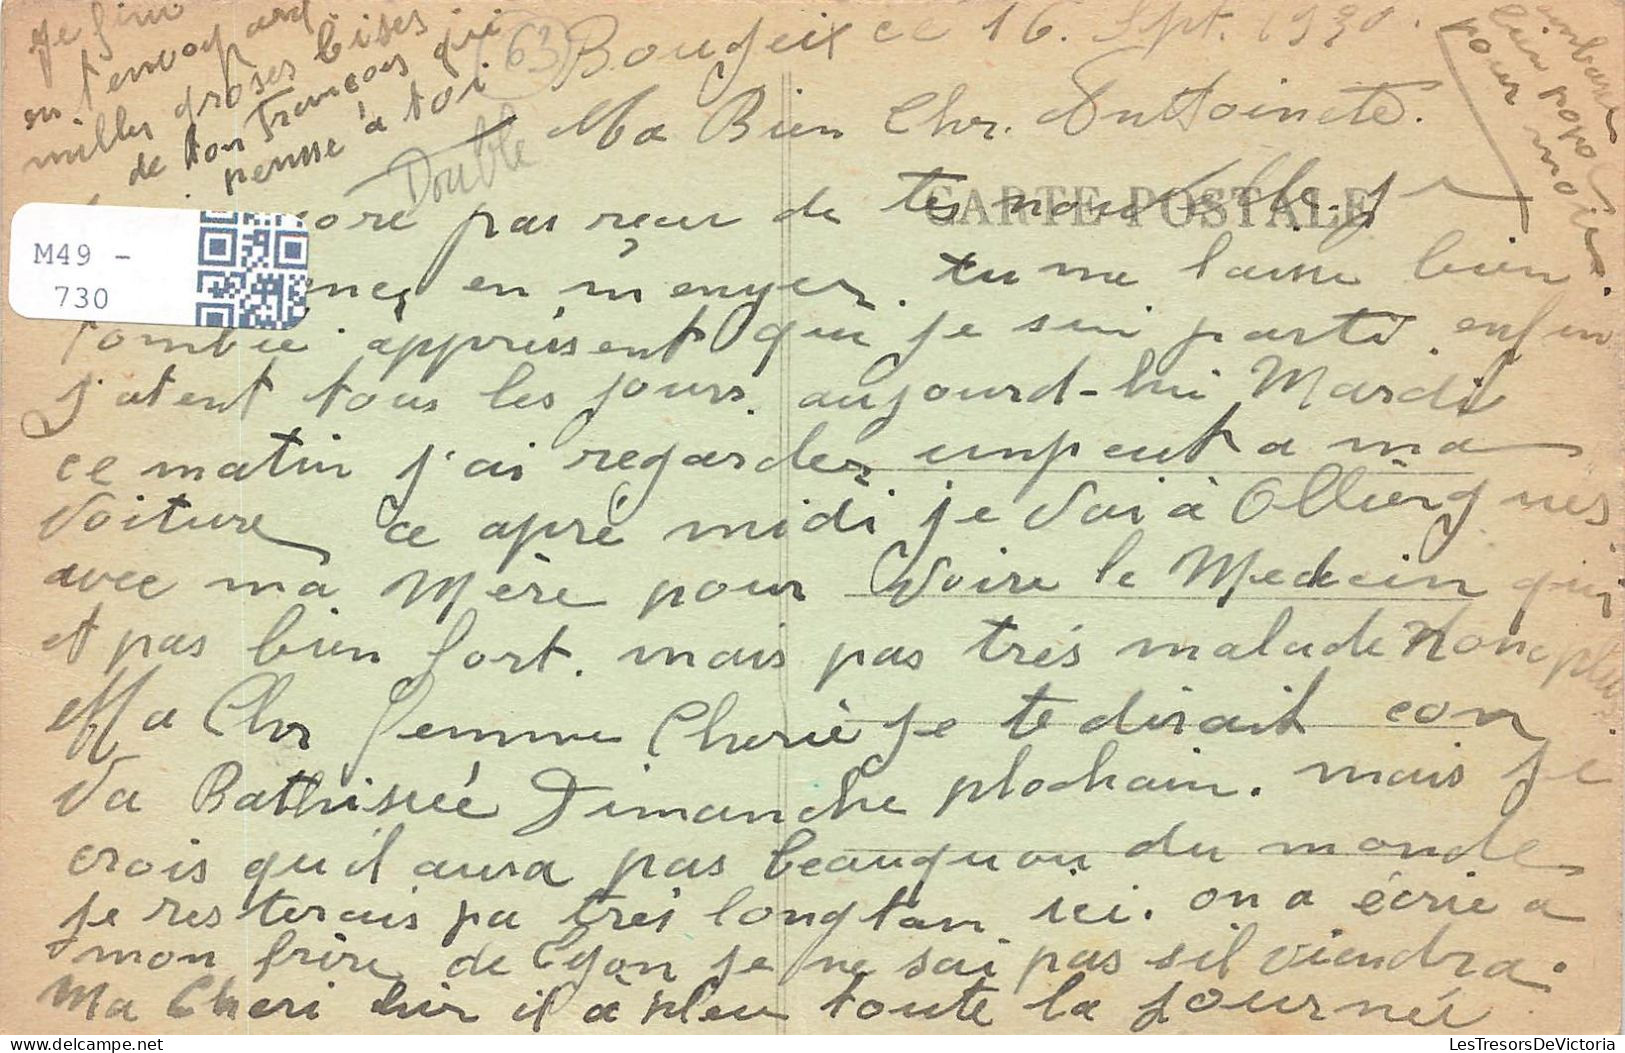 Bougeix ce 16. Sept. 1930.
63
Double
Ma Bien Chr. Antoinete.
CARTE POSTALE
pas reçu de tes nouvelle. Je
en m'enyer. tu me laisse bien
tombée appressent que je sui parti. enfin
j'atent tous les jours. aujourd-hui Mardi
ce matin j'ai regarder unpeut a ma
voiture ce apré midi je vai à Olliergues
avec ma Mère pour voire le Medecin qui
et pas bien fort. mais pas très malade non plus.
Ma Chr femme Cherie je te dirait con
va Bathisée Dimanche plochain. mais je
crois qu'il aura pas beauquou du monde
je resterais pa très longtan ici. on a écrie a
mon frère de Lyon je ne sai pas sil viendra.
Ma Cheri hir il à pleu toute la journèe
je fini
en t'envoyard
milles groses bises
de ton François qui
pensse à toi
embars
bien popa
pour moi.
M49 -
730
www.LesTresorsDeVictoria.com